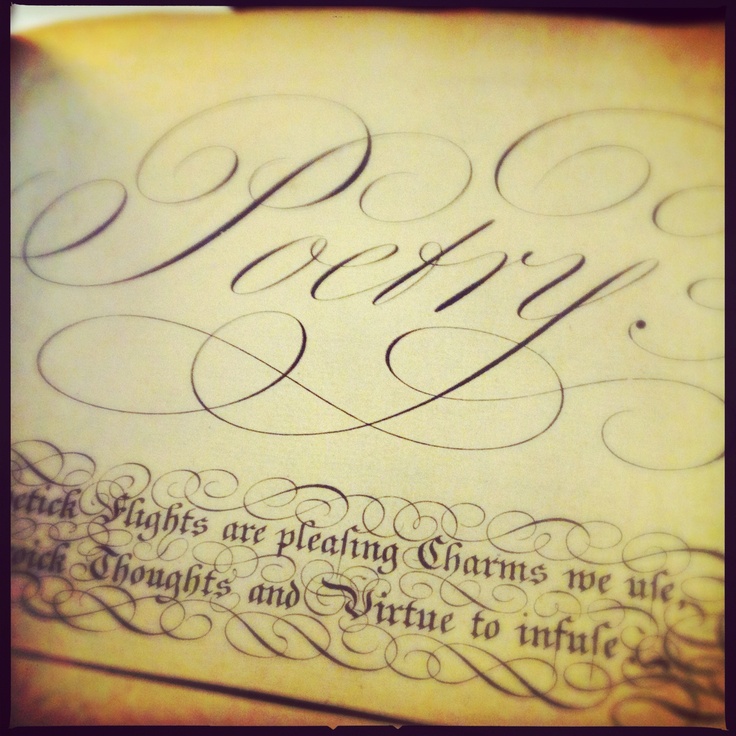 Poetry.
etick Flights are pleaſing Charms we uſe,
oick Thoughts and Virtue to infuſe.